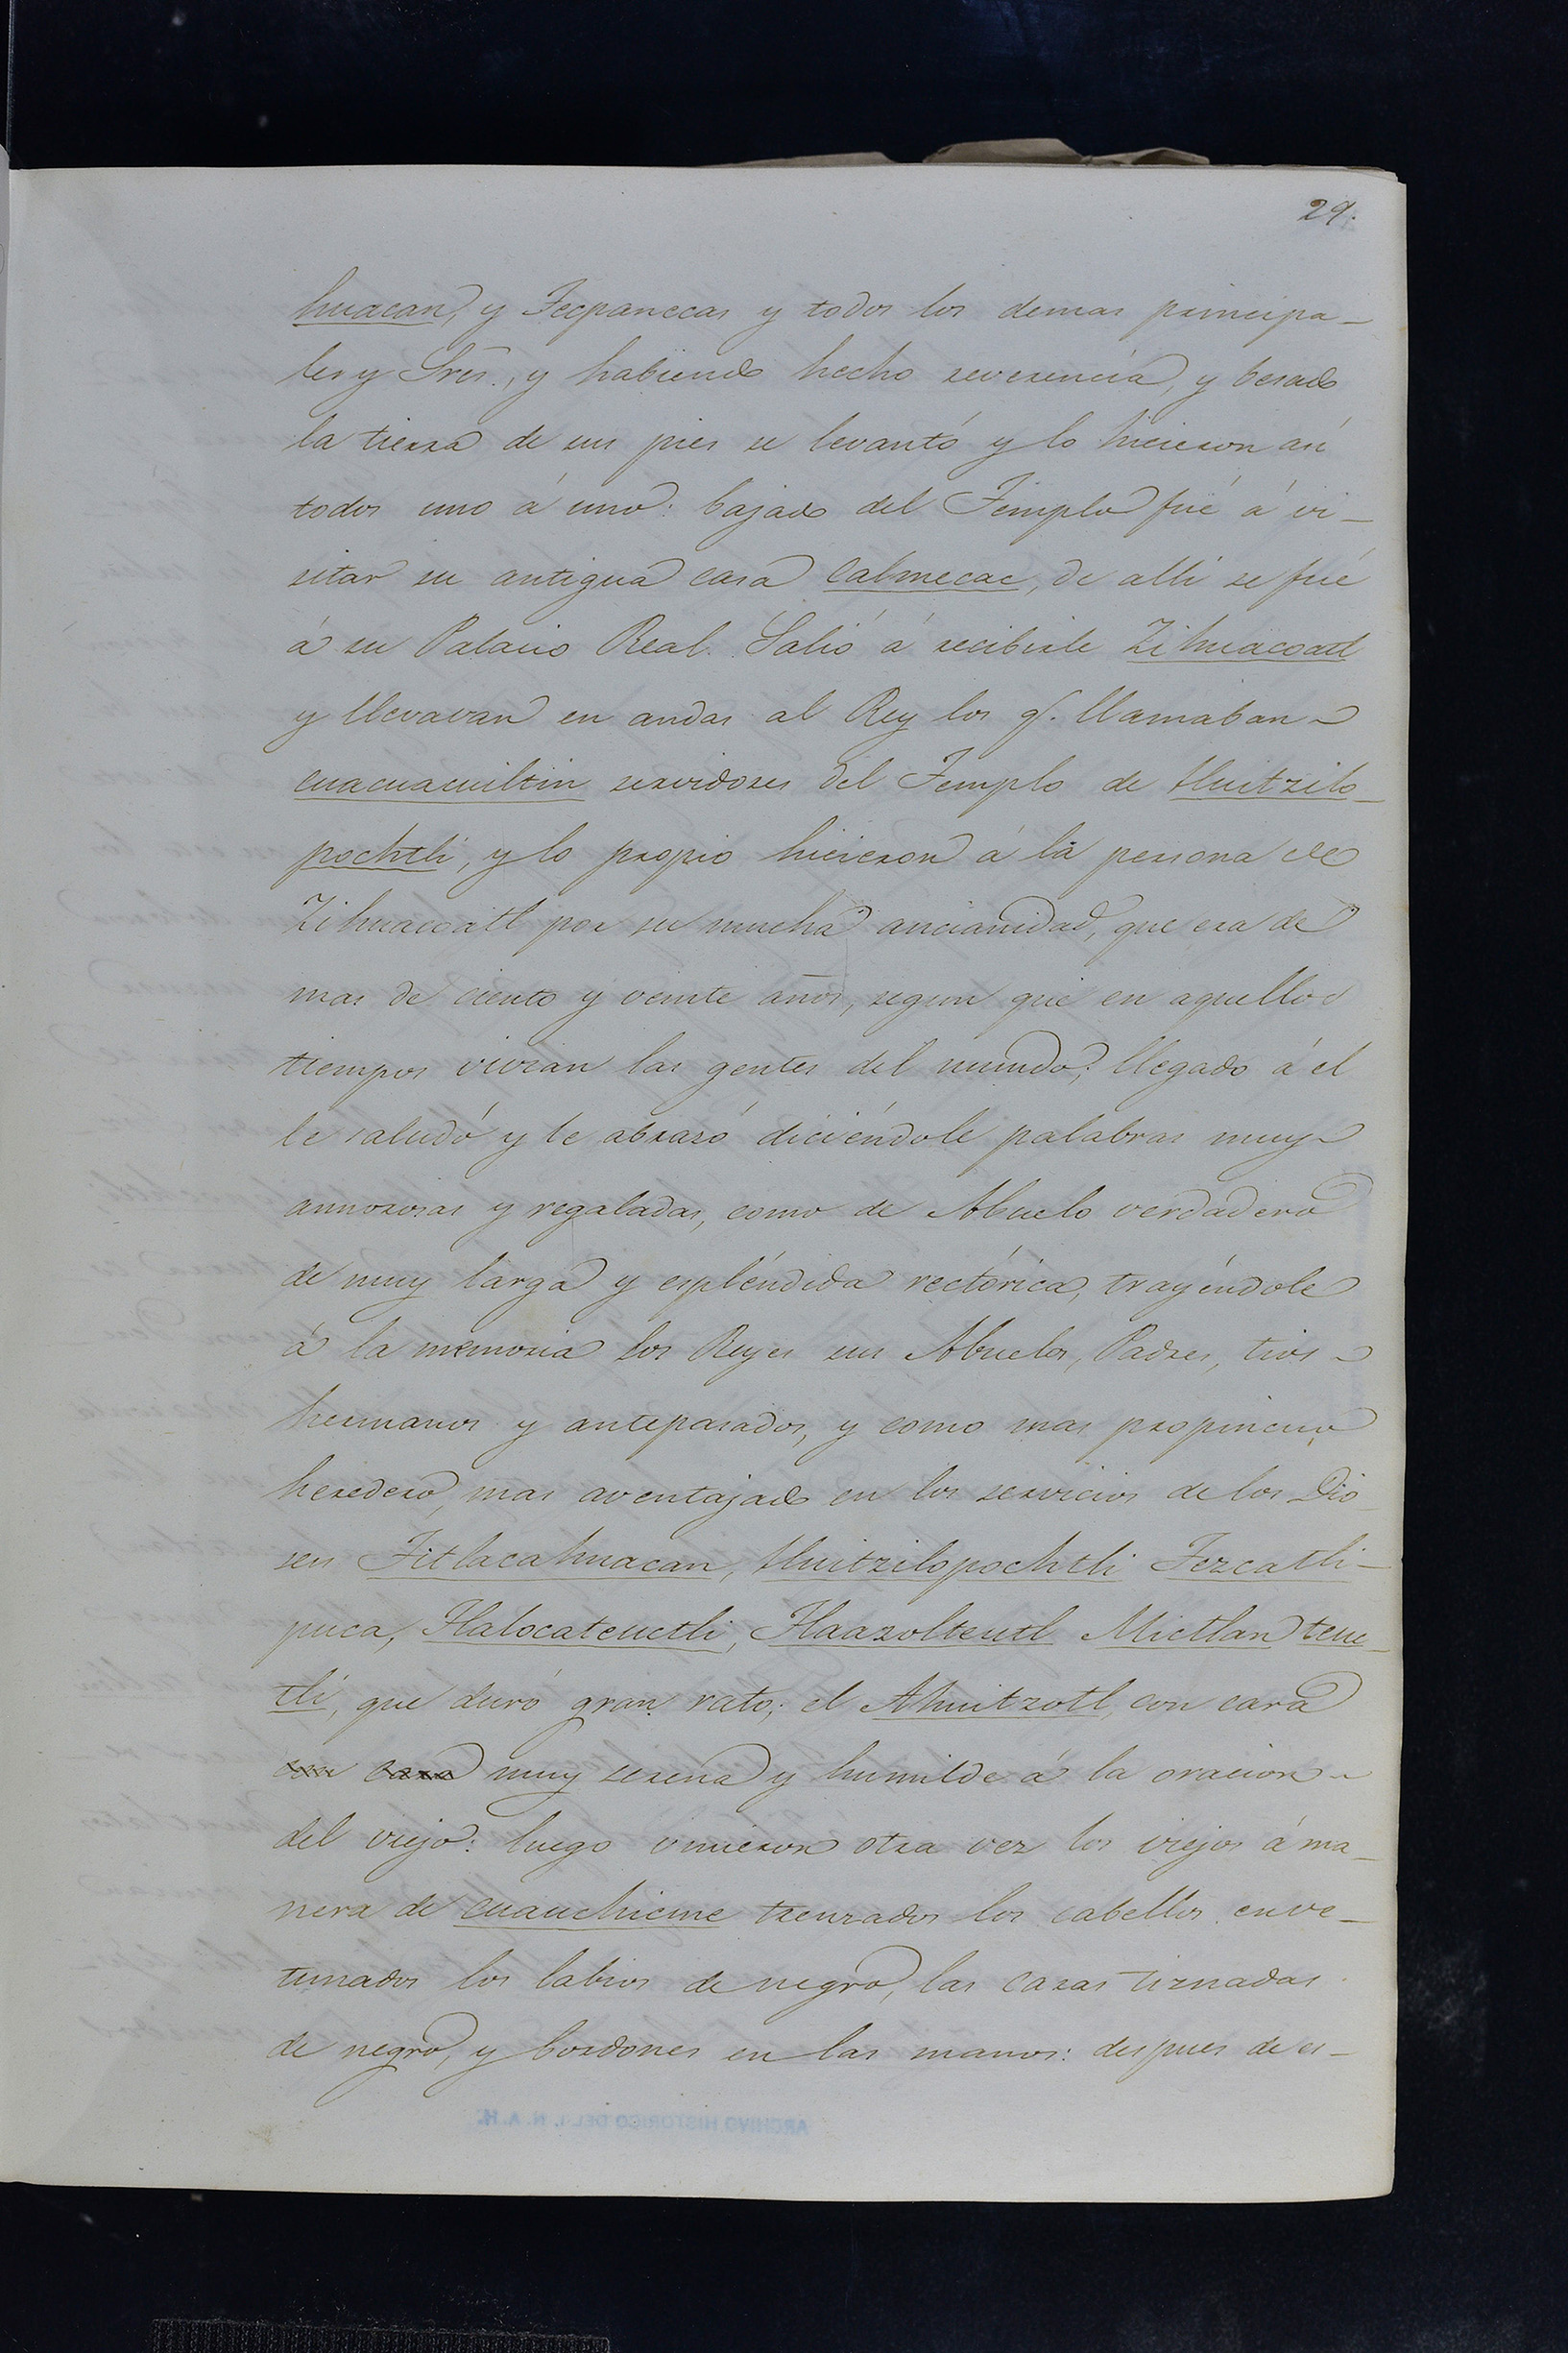 29.
huacan, y Tecpanecas y todos los demas principa-
les y Sres., y habiendo hecho reverencia, y besado
la tierra de sus pies se levantó y lo hicieron así
todos uno á uno: bajado del Templo fué á vi-
sitar su antigua casa Calmecac, de alli se fué
á su Palacio Real. Salió á recibirle Zihuacoatl
y llevavan en andas al Rey los q.e llamaban
cuacuacuiltin servidores del Templo de Huitzilo-
pochtli, y lo propio hicieron á la persona de
Zihuacoatl por su mucha ancianidad, que era de
mas de ciento y veinte años, segun que en aquellos
tiempos vivian las gentes del mundo; llegado á el
le saludó y le abrasó diciéndole palabras muy
amorosas y regaladas, como de Abuelo verdadero
de muy larga y espléndida rectórica, trayéndole
á la memoria los Reyes sus Abuelos, Padres, tios
hermanos y antepasados, y como mas propincuo
heredero, mas aventajado en los servicios de los Dio-
ses Titlacahuacan, Huitzilopochtli Tezcatli-
puca, Tlalocateuctli, Tlaazolteutl Mictlan teuc-
tli, que duró gran rato; el Ahuitzotl, con cara
con cara muy serena y humilde á la oracion
del viejo: luego vinieron otra vez los viejos á ma-
nera de cuauchicme trenzados los cabellos enve-
tunados los labios de negro, las caras tiznadas
de negro, y bordones en las manos: despues de es-
ARCHIVO HISTORICO DEL I. N. A. H.